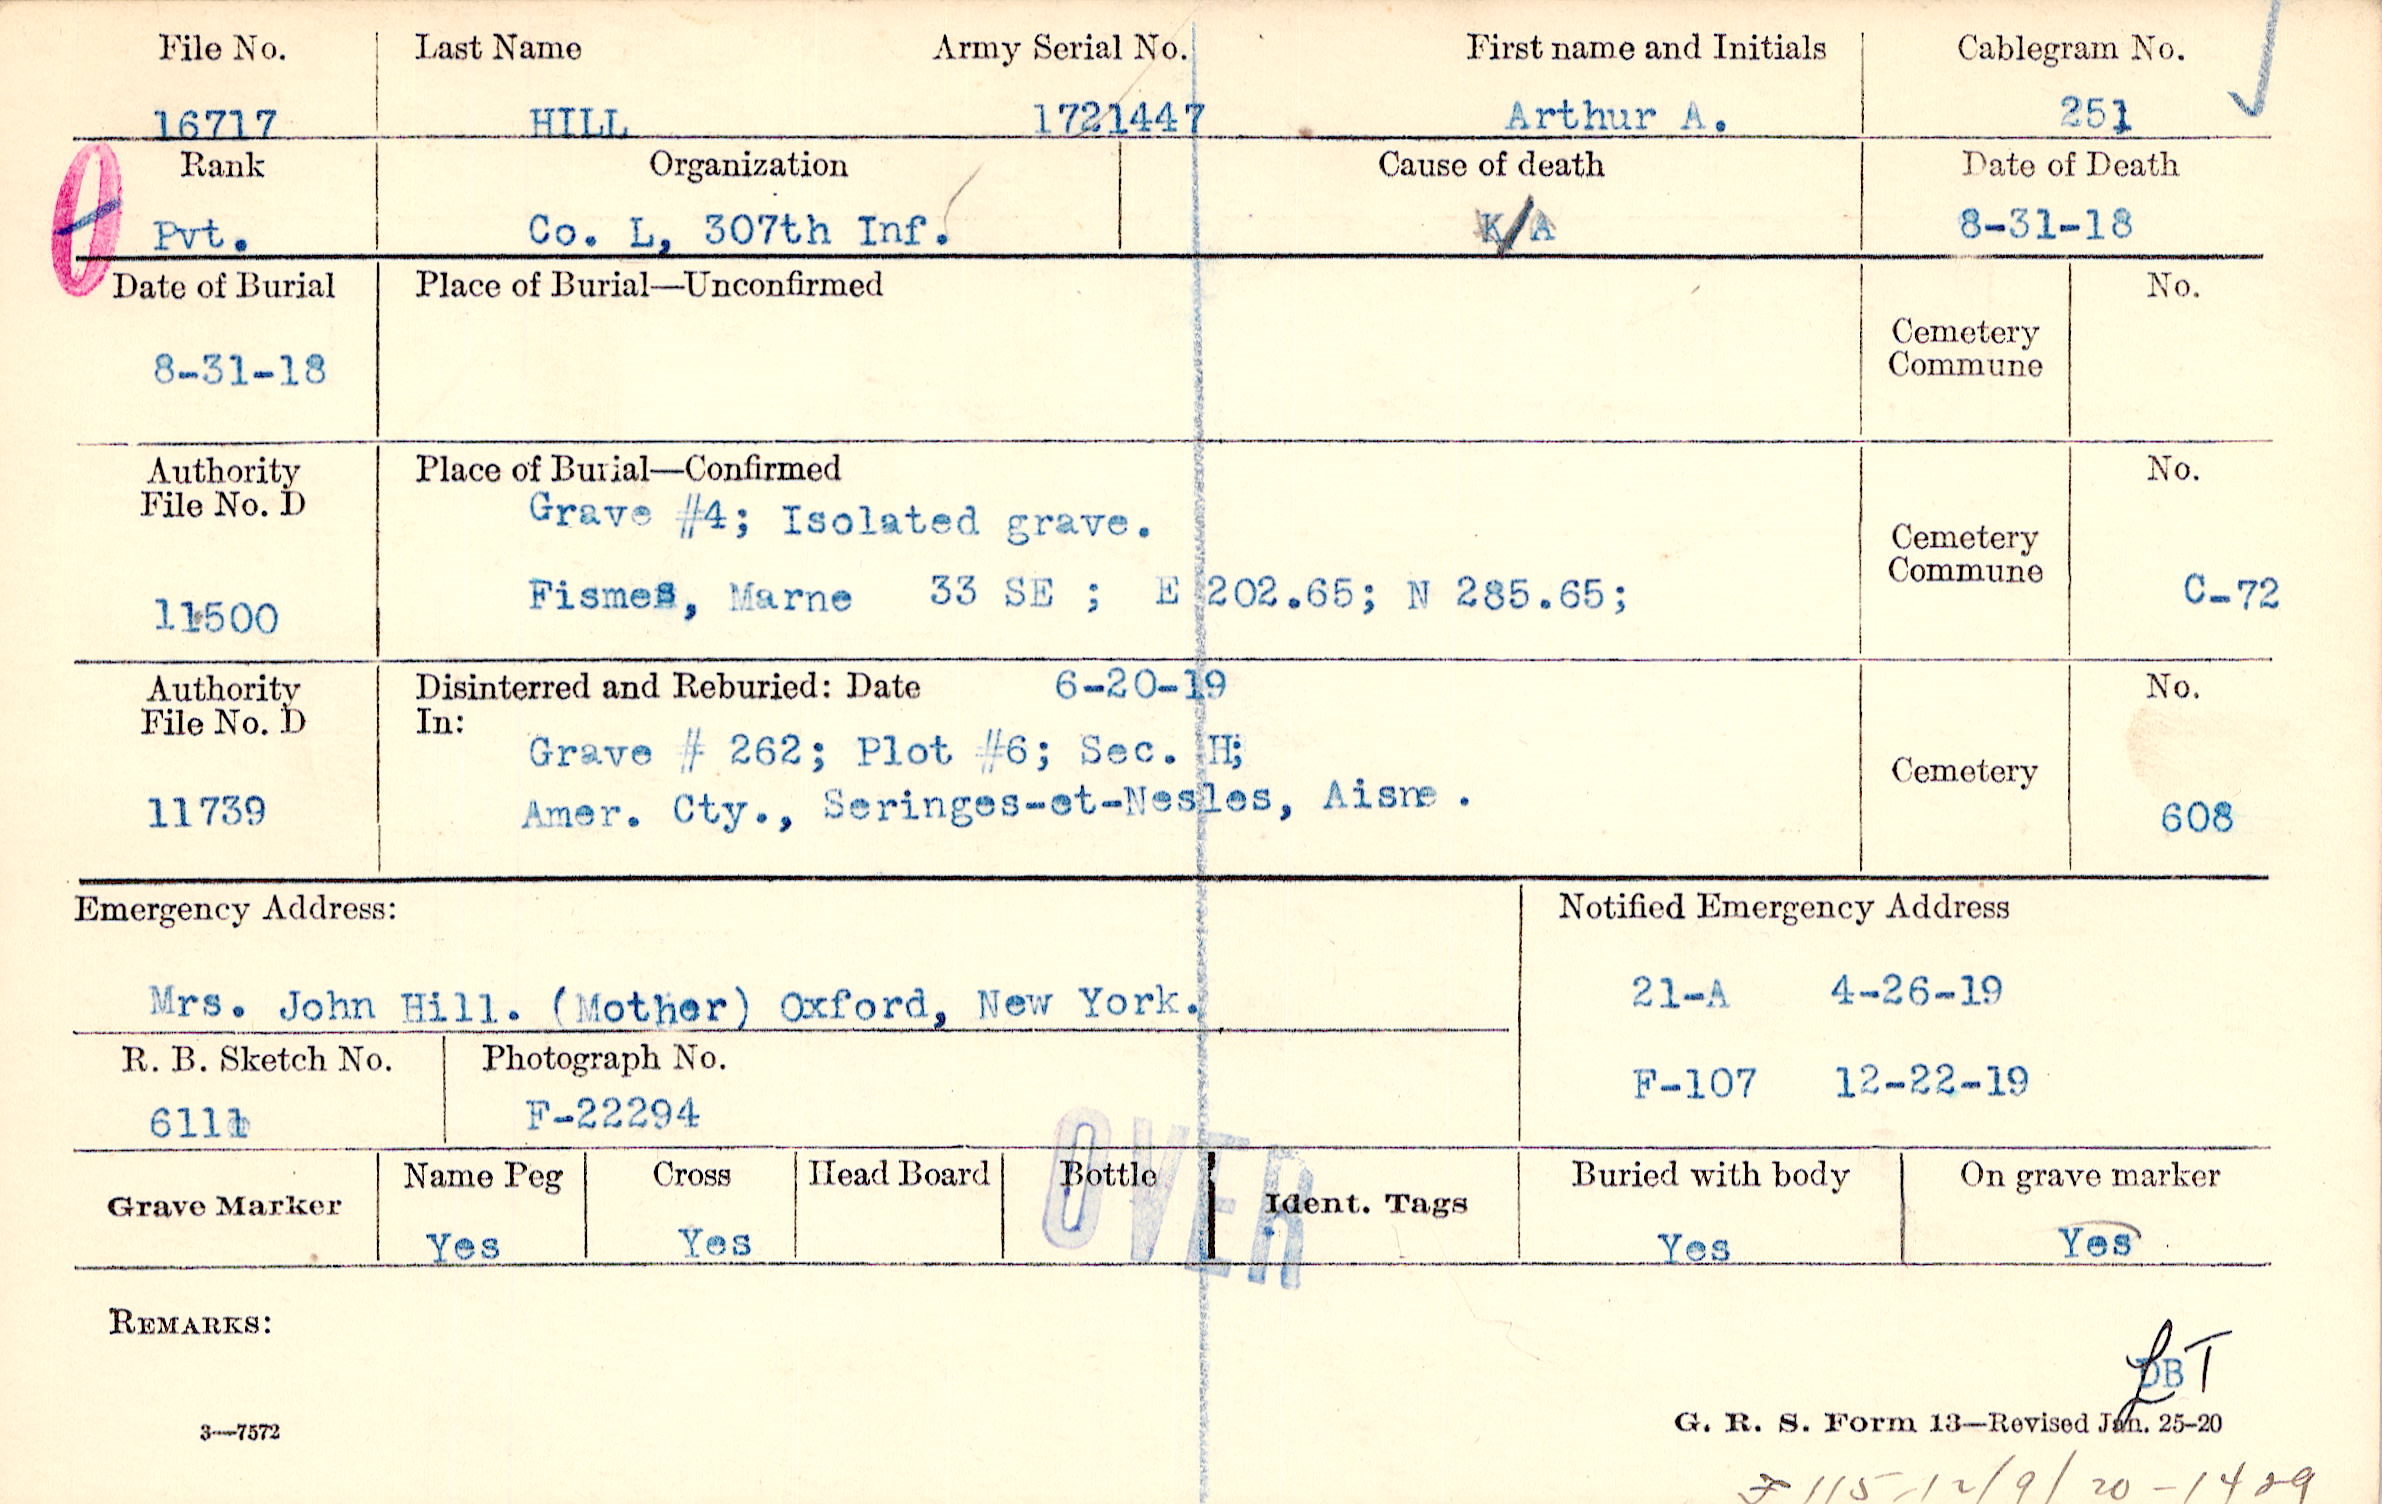 File No. Last Name Army Serial No. First name and Initials Cablegram No.
16717 HILL 1721447 Arthur A. 251
Rank Organization Cause of death Date of Death
Pvt. Co. L, 307th Inf. K/A 8-31-18
Date of Burial Place of Burial—Unconfirmed No.
Cemetery
Commune
8-31-18
Authority Place of Burial—Confirmed No.
File No. D Grave #4; Isolated grave.
Cemetery
Commune
11500 Fismes, Marne 33 SE ; E 202.65; N 285.65; C-72
Authority Disinterred and Reburied: Date 6-20-19 No.
File No. D In:
Grave # 262; Plot #6; Sec. H;
Cemetery
11739 Amer. Cty., Seringes-et-Nesles, Aisne. 608
Emergency Address: Notified Emergency Address
Mrs. John Hill. (Mother) Oxford, New York. 21-A 4-26-19
R. B. Sketch No. Photograph No.
6111 F-22294 F-107 12-22-19
OVER
Grave Marker Name Peg Cross Head Board Bottle Ident. Tags Buried with body On grave marker
Yes Yes Yes Yes
REMARKS:
DB T
3—7572 G. R. S. Form 13—Revised Jan. 25-20
115 12/9/20-1429